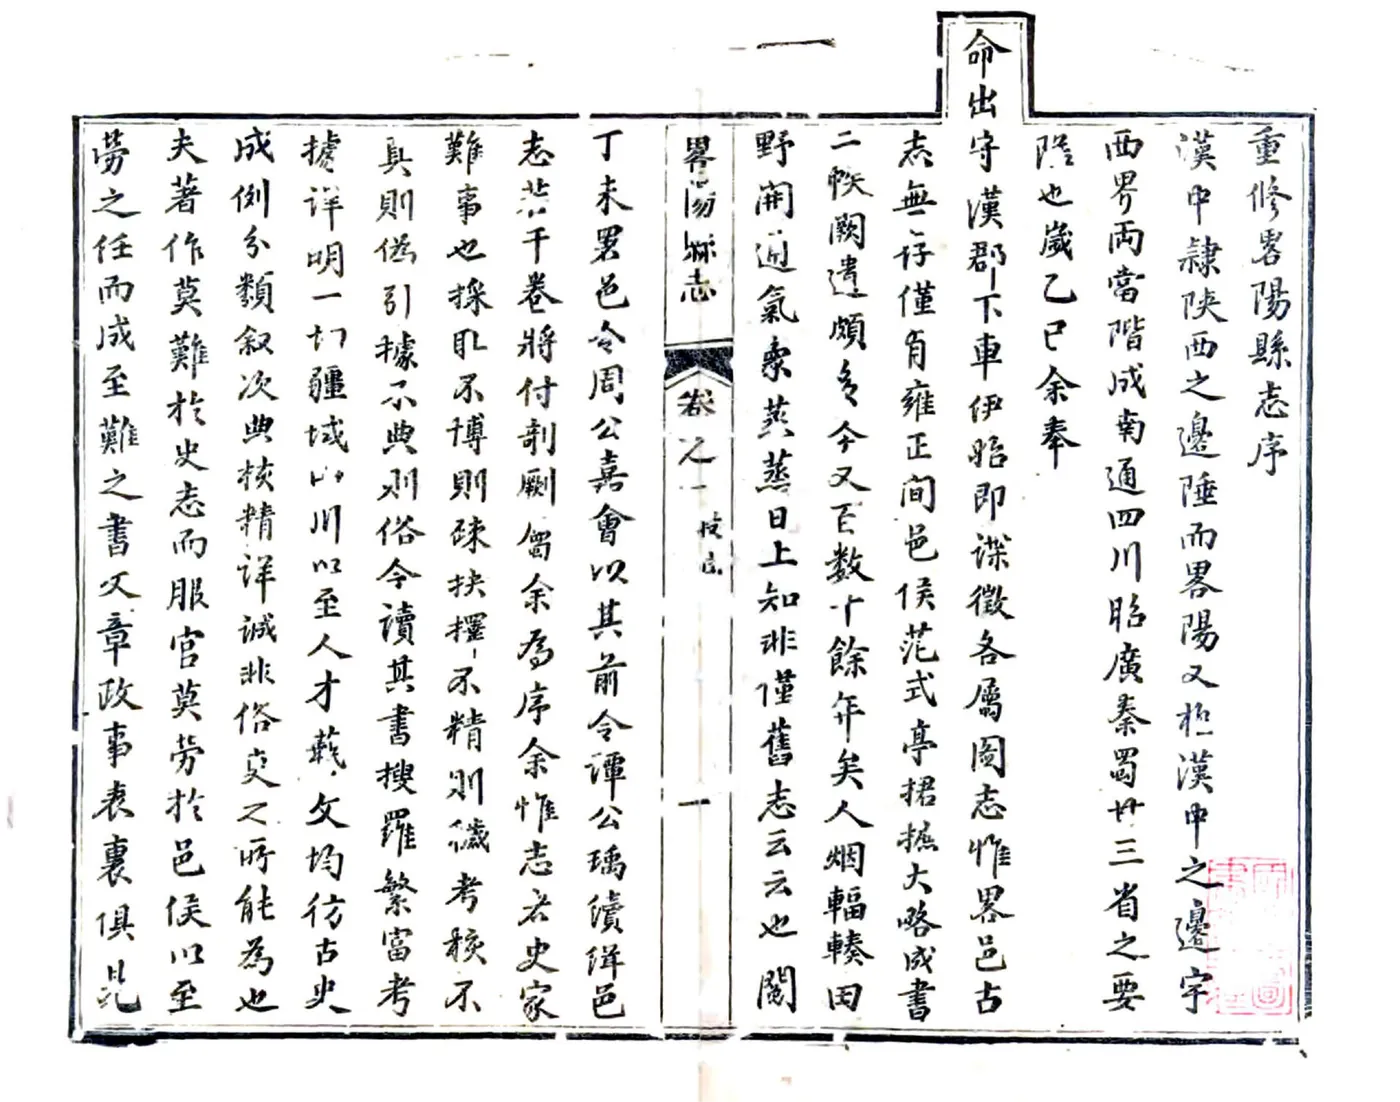 重修畧陽縣志序
漢中隸陝西之邊陲而畧陽又極漢中之邊宇
西界兩當階成南通四川昭廣秦蜀廿三省之要
隘也歲乙巳余奉
命出守漢郡下車伊始即諜徵各屬圖志惟畧邑古
志無存僅有雍正間邑侯范式亭捃摭大略成書
二帙闕遺頗多今又百數十餘年矣人烟輻輳田
野開通氣象蒸蒸日上知非僅舊志云云也閱
畧陽縣志 卷之一 一
丁未署邑令周公嘉會以其前令譚公瑀續緝邑
志若干卷將付剞劂屬余為序余惟志者史家
難事也採取不博則疎抉擇不精則穢考核不
真則偽引據不典則俗今讀其書搜羅繁富考
據詳明一切疆域山川以至人才藝文均仿古史
成例分類叙次典核精詳誠非俗吏之所能為也
夫著作莫難於史志而服官莫勞於邑侯以至
勞之任而成至難之書文章政事表裏俱見